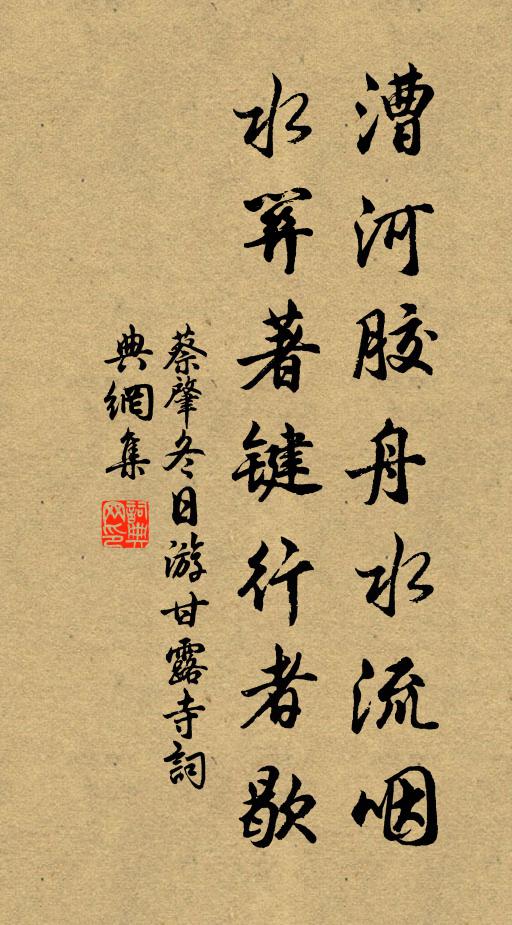 漕河胶舟水流咽
水關著键行者歇
蔡肇冬日游甘露寺詞
典網集
詞典
网印